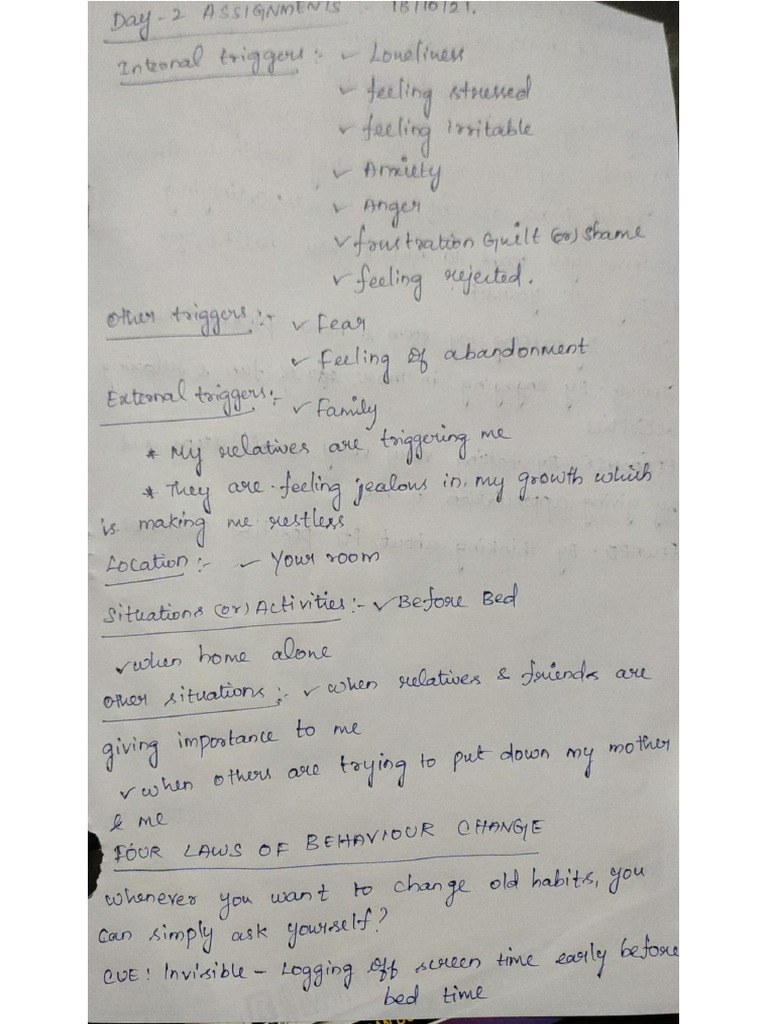 Day-2 ASSIGNMENTS 18/10/21.
Internal triggers:- ✓ Loneliness
✓ feeling stressed
✓ feeling irritable
✓ Anxiety
✓ Anger
✓ frustration Guilt (or) shame
✓ feeling rejected.
Other triggers:- ✓ Fear
✓ Feeling of abandonment
External triggers:- ✓ Family
* My relatives are triggering me
* They are feeling jealous in my growth which
is making me restless
Location:- ✓ Your room
Situations (or) Activities:- ✓ Before Bed
✓ when home alone
Other situations:- ✓ when relatives & friends are
giving importance to me
✓ when others are trying to put down my mother
& me
FOUR LAWS OF BEHAVIOUR CHANGE
Whenever you want to change old habits, you
can simply ask yourself?
CUE: Invisible - Logging off screen time early before
bed time